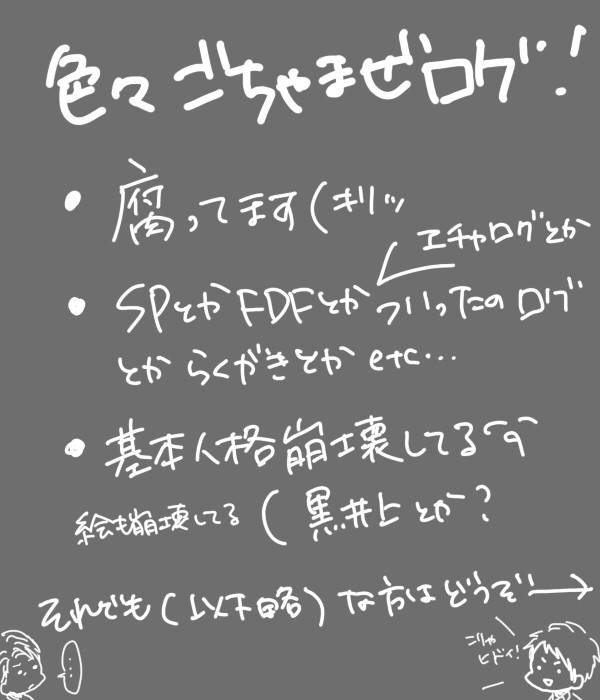 色々ごちゃまぜログ!
• 腐ってます(キリッ
エチャログとか
• SPとかFDFとかついったのログ
とからくがきとかetc…
• 基本人格崩壊してる^q^
絵も崩壊してる(黒井上とか?
それでも(以下略)な方はどうぞ→
…
こりゃ
ヒドイ!